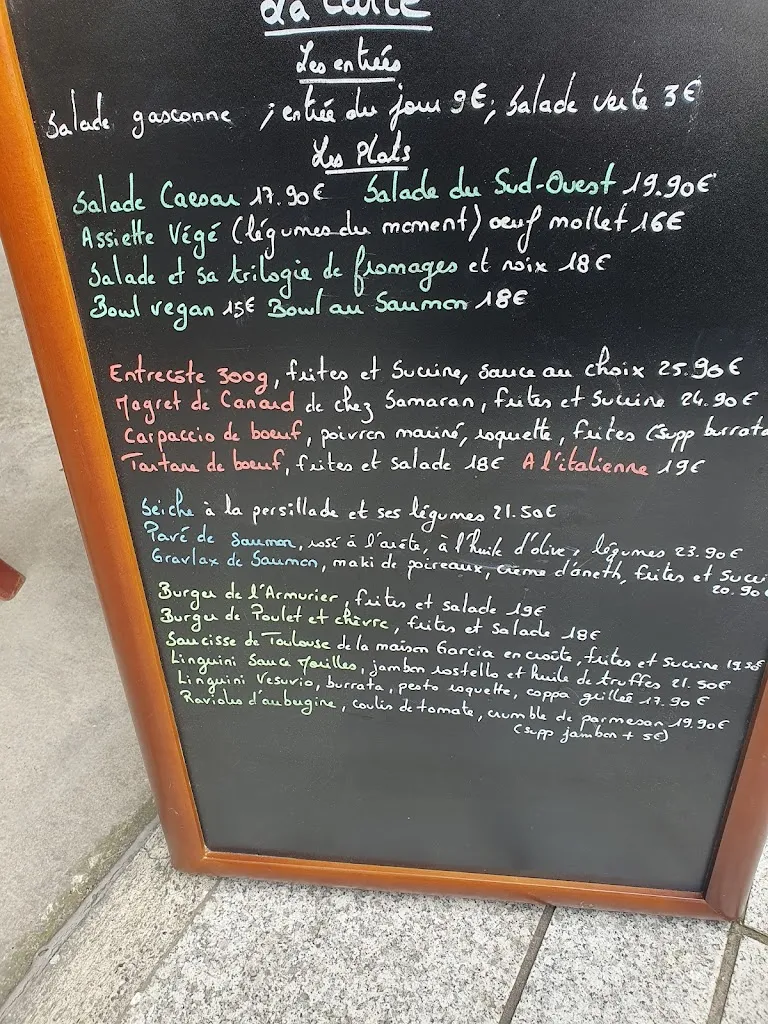 La Carte
Les entrées
Salade gasconne ; entrée du jour 9€; Salade verte 3€
Les Plats
Salade Caesar 17.90€ Salade du Sud-Ouest 19.90€
Assiette Végé (légumes du moment) oeuf mollet 16€
Salade et sa trilogie de fromages et noix 18€
Bowl vegan 15€ Bowl au Saumon 18€
Entrecôte 300g, frites et Sucrine, sauce au choix 25.90€
Magret de Canard de chez Samaran, frites et Sucrine 24.90€
Carpaccio de boeuf, poivron mariné, roquette, frites (supp burrata
Tartare de boeuf, frites et salade 18€ A l'italienne 19€
Seiche à la persillade et ses légumes 21.50€
Pavé de Saumon, rosé à l'arête, à l'huile d'olive, légumes 23.90€
Gravlax de Saumon, maki de poireaux, crème d'aneth, frites et Sucri
20.90€
Burger de l'Armurier, frites et salade 19€
Burger de Poulet et chèvre, frites et Salade 18€
Saucisse de Toulouse de la maison Garcia en croûte, frites et Sucrine
Linguini Sauce Morilles, jambon rostello et huile de truffes 21.50€
Linguini Vesuvio, burrata, pesto roquette, coppa grillée 17.90€
Ravioles d'aubergine, coulis de tomate, crumble de parmesan 19.90€
(supp jambon + 5€)